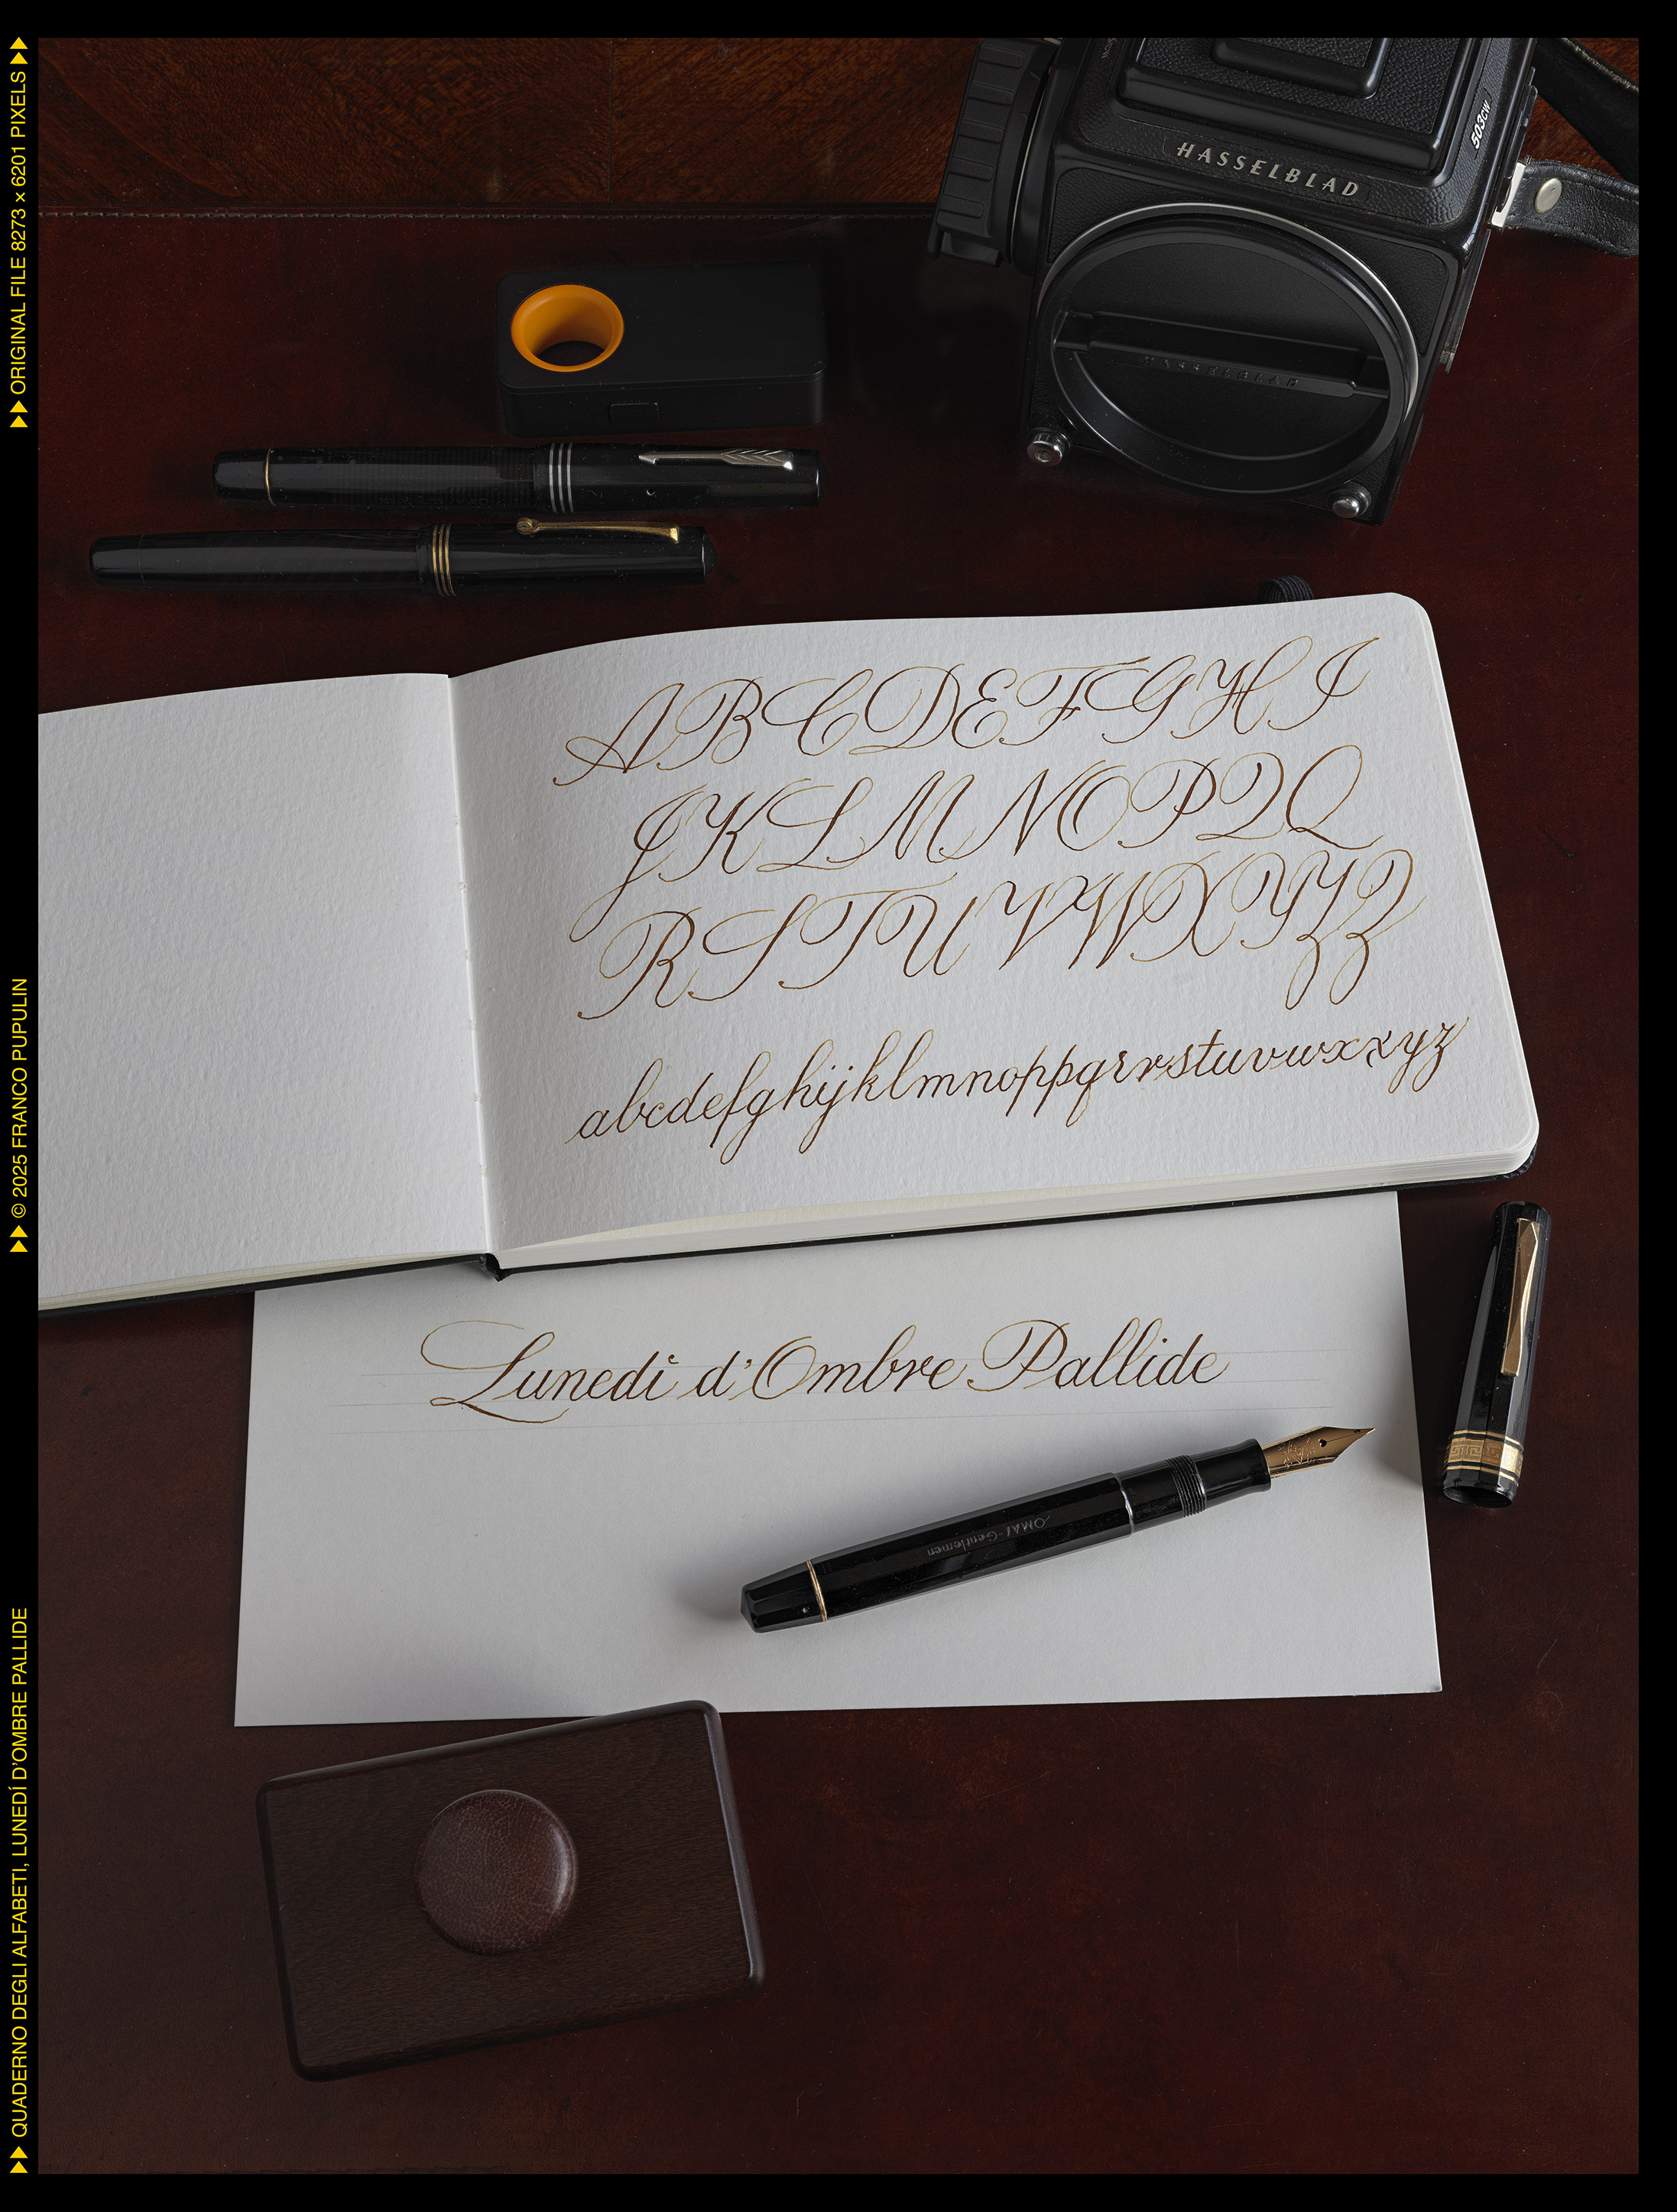 HASSELBLAD
503CW
HASSELBLAD
A B C D E F G H I
J K L M N O P Q Q
R S T U V W X Y Z Z
abcdefghijklmnoppqrrstuvwxxyz
Lunedì d'Ombre Pallide
OMAI-Gentlemen
ORIGINAL FILE 8273 × 6201 PIXELS
© 2025 FRANCO PUPULIN
QUADERNO DEGLI ALFABETI, LUNEDÍ D'OMBRE PALLIDE